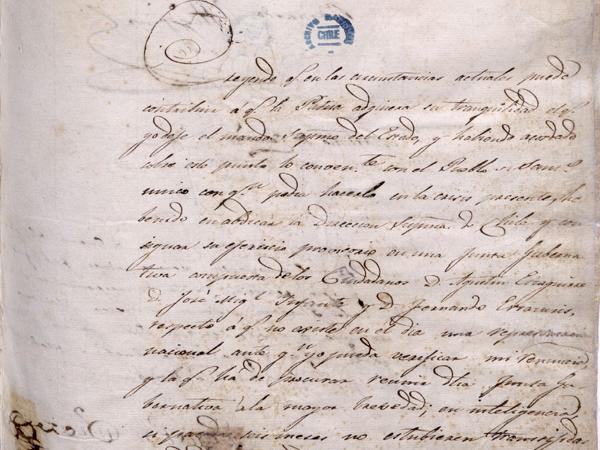 ARCHIVO NACIONAL
CHILE
Creyendo q.e en las circunstancias actuales puede
contribuir a q.e la Patria adquiera su tranquilidad el q.e
yo deje el mando Supremo del Estado, y habiendo acordado
sobre este punto lo conven.te con el Pueblo de Sant.o
unico con q.n podia hacerlo en la crisis presente, he
benido en abdicar la Direccion Suprema de Chile y con-
signar su ejercicio provisorio en una Junta Guberna
tiva compuesta de los Ciudadanos D. Agustin Eyzaguirre
D. José Mig.l Infante y D. Fernando Errazuris,
respecto á q.e no existe en el dia una representacion
nacional ante q.n yo pueda verificar mi renuncia
y la q.e ha de procurar reunir dha Junta Gu
bernativa á la mayor brevedad; en inteligencia
si pasados seis meses no estubieren transijidas